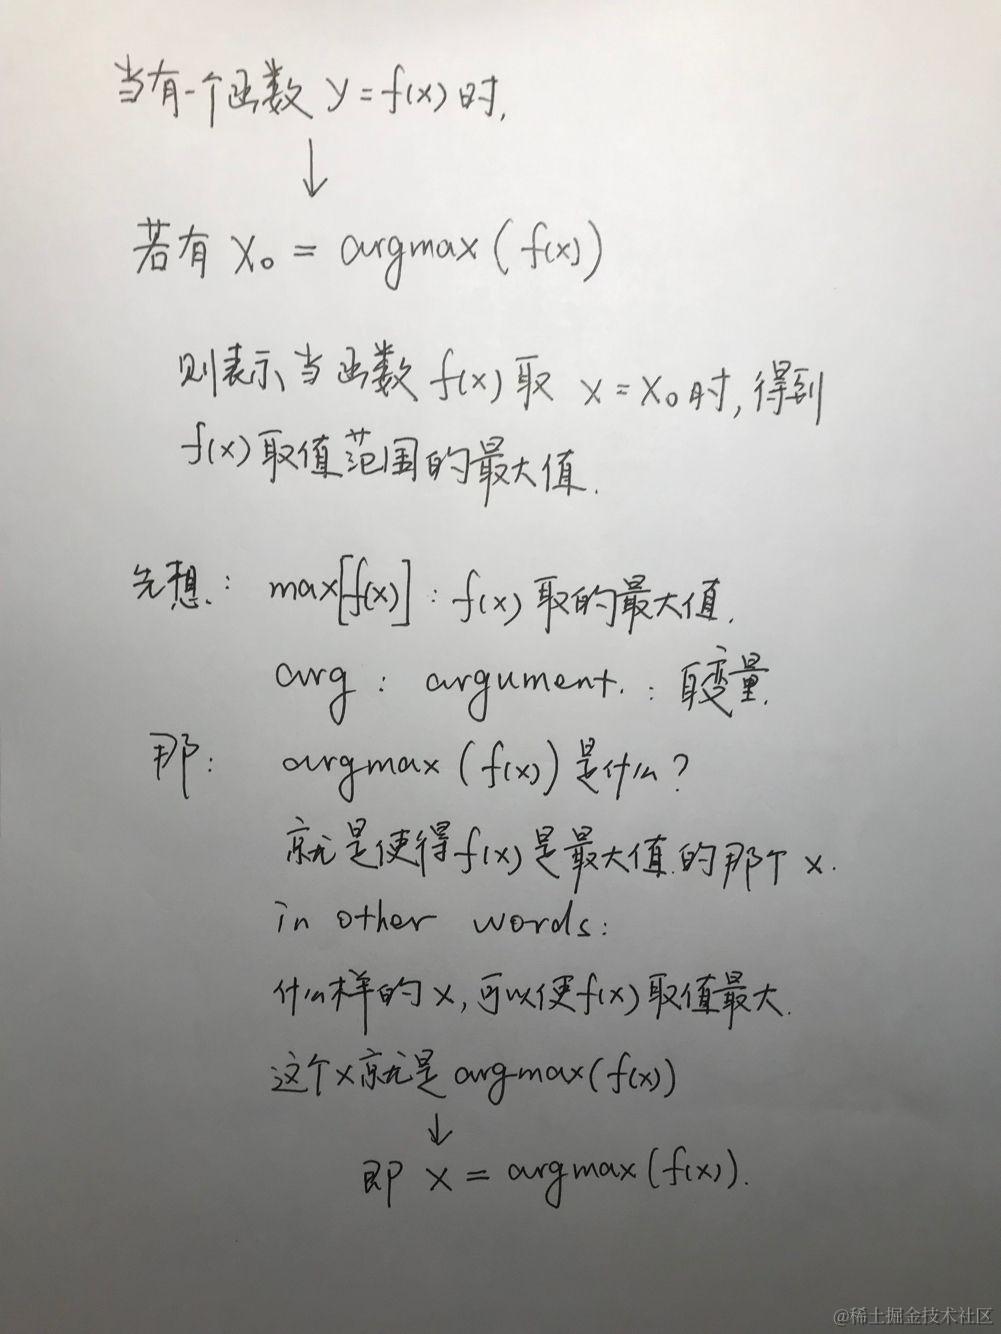 当有一个函数 y=f(x)时,
↓
若有 X₀ = argmax(f(x))
则表示当函数 f(x)取 x=X₀时,得到
f(x)取值范围的最大值.
先想: max[f(x)]: f(x)取的最大值.
arg: argument.: 自变量.
那: argmax(f(x))是什么?
就是使得f(x)是最大值的那个x.
in other words:
什么样的x,可以使f(x)取值最大.
这个x就是argmax(f(x))
↓
即 x = argmax(f(x)).
@稀土掘金技术社区